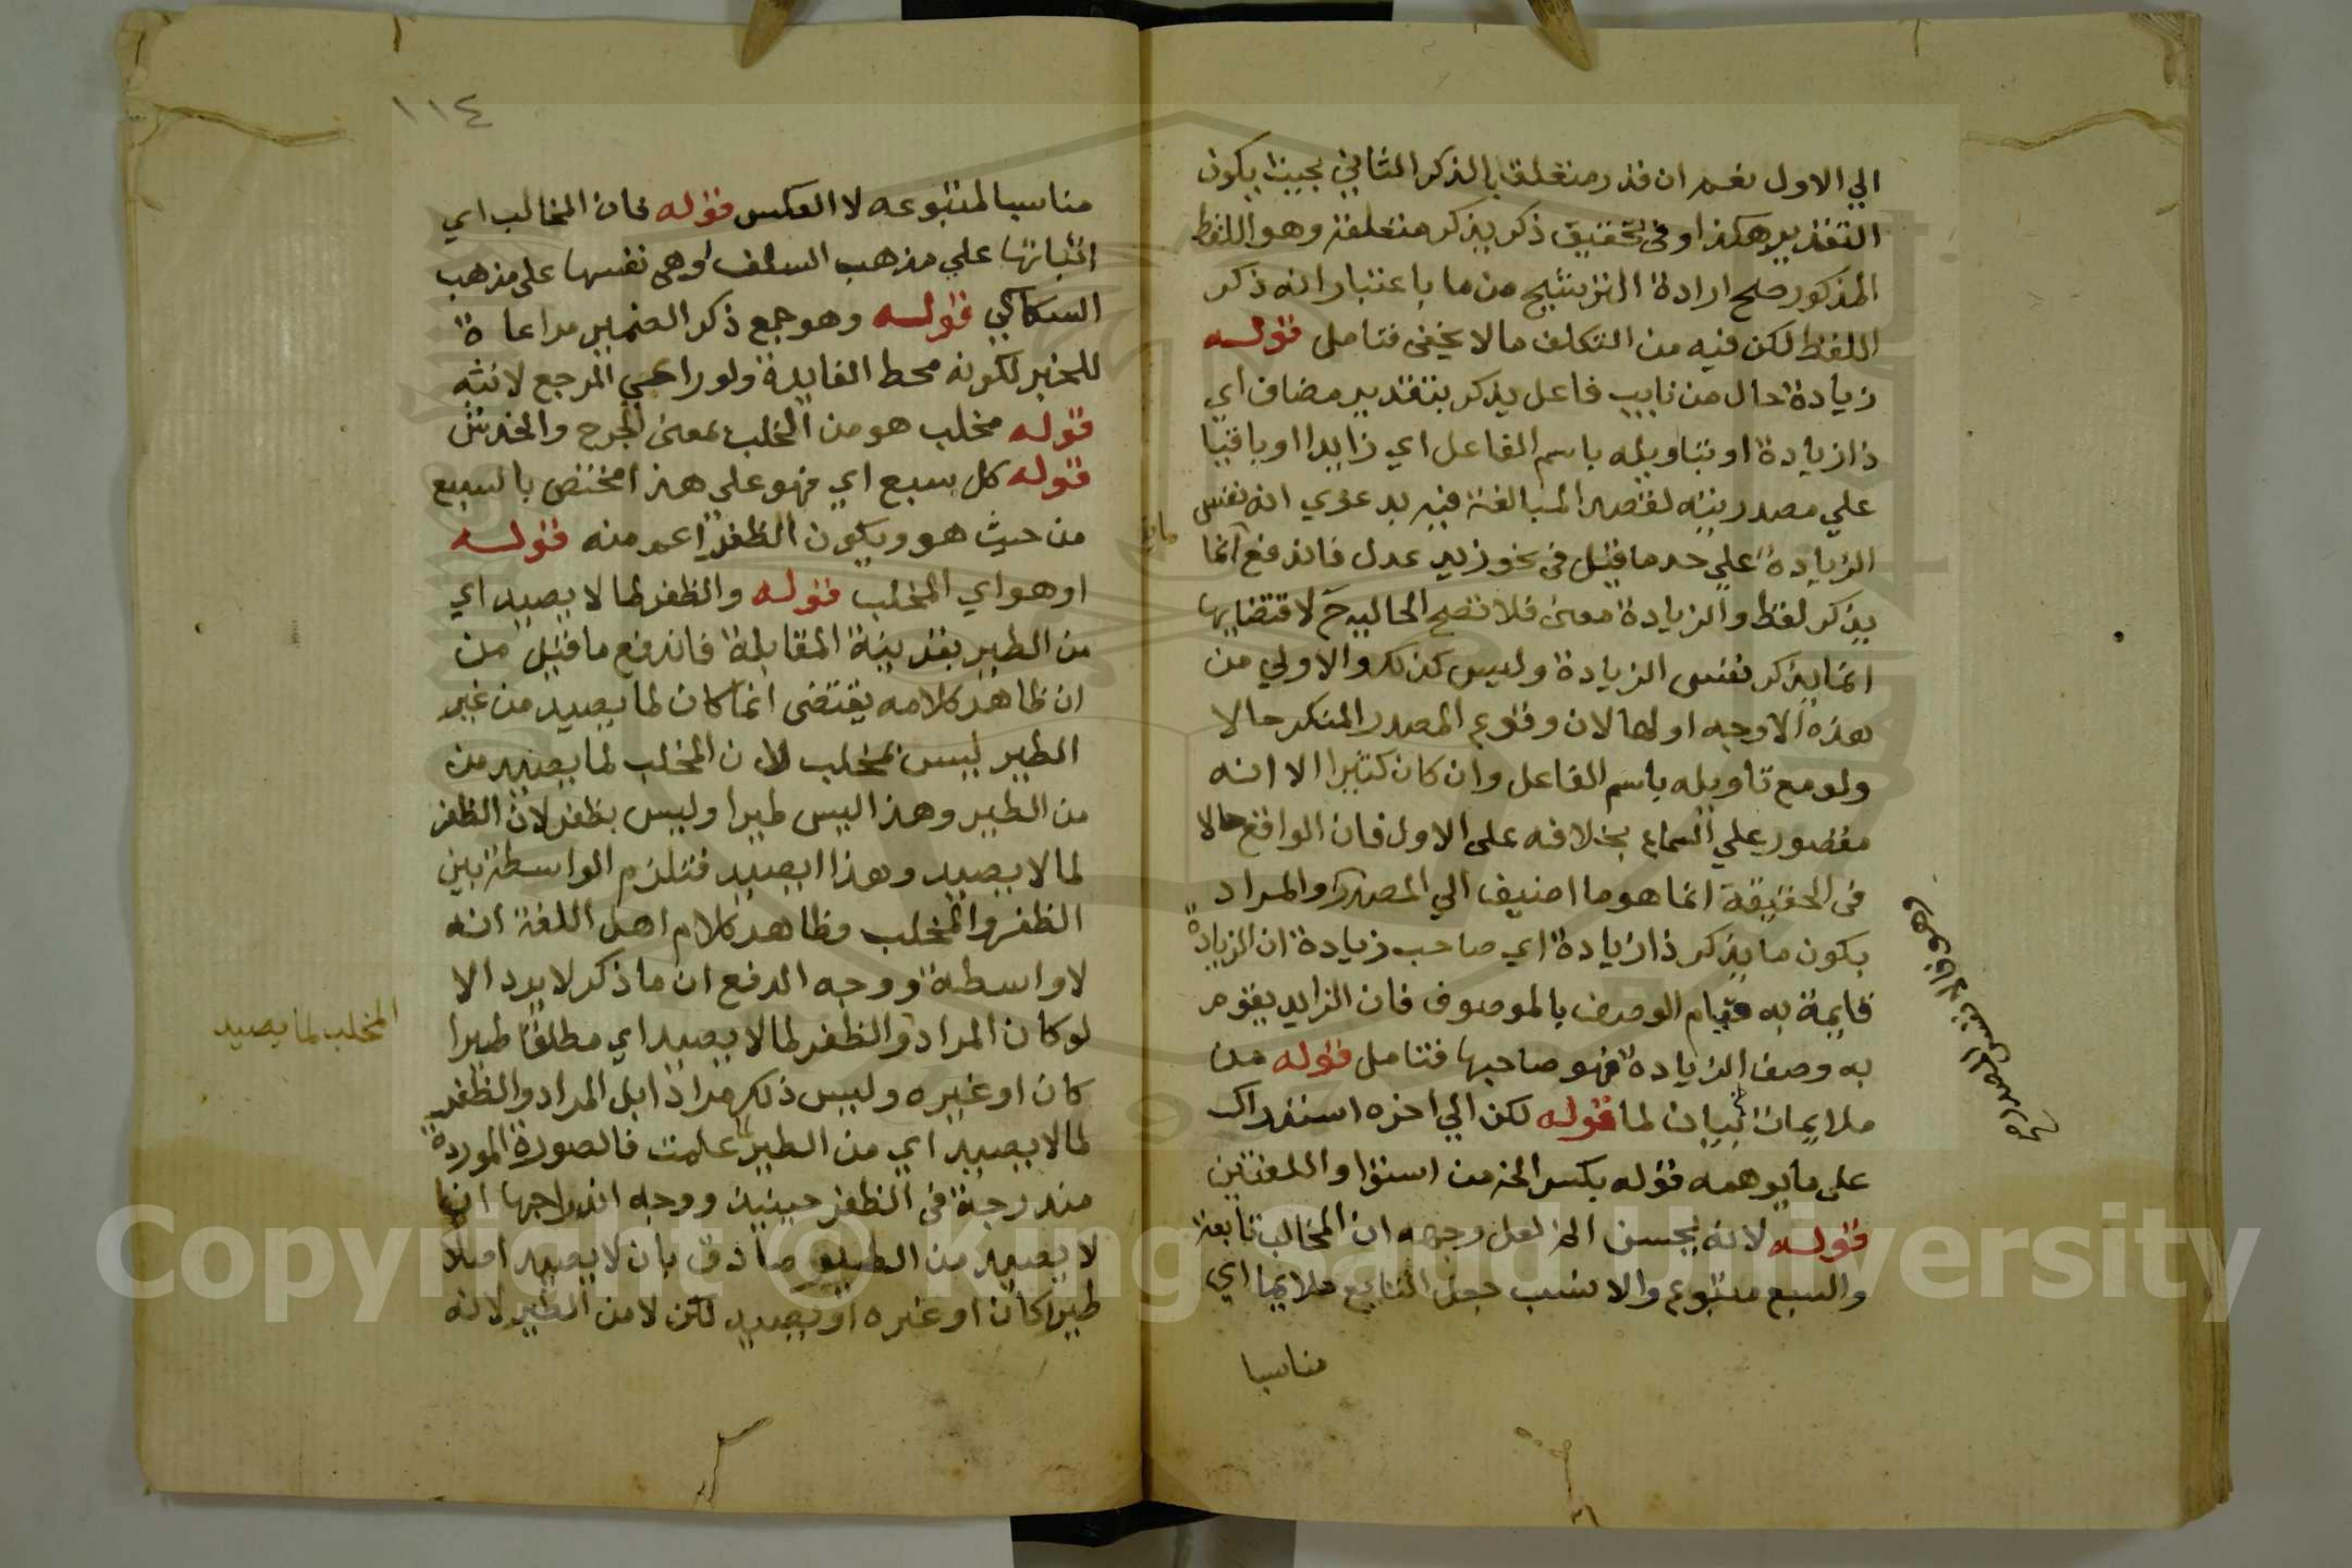 الي الاول نعم ان قدر متعلقا بالذكر الثاني بحيث يكون
التقدير هكذا وفي تحقيق ذكر يذكر متعلقه وهو اللفظ
المذكور صلح ارادة الترشيح من ما باعتبار انه ذكر
اللفظ لكن فيه من التكلف ما لا يخفى فتامل قوله
زيادة حال من نايب فاعل يذكر بتقدير مضاف اي
ذا زيادة او بتاويله باسم الفاعل اي زايدا او باقيا
علي مصدريته لقصد المبالغة فيه بدعوي انه نفس
الزيادة علي حد ما قيل في نحو زيد عدل فاندفع انما
يذكر لفظ والزيادة معنى فلا تصح الحالية ح لاقتضايها
انما يذكر نفس الزيادة وليس كذلك والاولي من
هذه الاوجه اولها لان وقوع المصدر المنكر حالا
ولو مع تاويله باسم الفاعل وان كان كثيرا الا انه
مقصور علي السماع بخلافه على الاول فان الواقع حالا
في الحقيقة انما هو ما اضيف الي المصدر والمراد
بكون ما يذكر ذا زيادة اي صاحب زيادة ان الزيادة
قايمة به قيام الوصف بالموصوف فان الزايد يقوم
به وصف الزيادة فهو صاحبها فتامل قوله من
ملايمات بيان لما قوله لكن الي اخره استدراك
على ما يوهمه قوله بكسر الخ من استوا واللغتين
قوله لانه يحسن الخ لعل وجهه ان المخالب تابعة
والسبع متبوع والانسب جعل التابع ملايما اي
مناسبا
١١٤
مناسبا لمتبوعه لا العكس قوله فان المخالب اي
اثباتها علي مذهب السلف او هي نفسها على مذهب
السكاكي قوله وهو جمع ذكر الضمير مراعاة
للخبر لكونه محط الفايدة ولو راعي المرجع لانثه
قوله مخلب هو من الخلب بمعنى الجرح والخدش
قوله كل سبع اي فهو علي هذا مختص بالسبع
من حيث هو ويكون الظفر اعم منه قوله
او هو اي المخلب قوله والظفر لما لا يصيد اي
من الطير بقرينة المقابلة فاندفع ما قيل من
ان ظاهر كلامه يقتضى انما كان لما يصيد من غير
الطير ليس بمخلب لان المخلب لما يصيد من
من الطير وهذا ليس طيرا وليس بظفر لان الظفر
لما لا يصيد وهذا يصيد فتلزم الواسطة بين
الظفر والمخلب وظاهر كلام اهل اللغة انه
لا واسطة ووجه الدفع ان ما ذكر لا يرد الا
لو كان المراد والظفر لما لا يصيد اي مطلقا طيرا
كان او غيره وليس ذلك مرادا بل المراد والظفر
لما لا يصيد اي من الطير علمت فالصورة الموردة
مندرجة في الظفر حينيذ ووجه اندراجها ان ما
لا يصيد من الطير صادق بان لا يصيد اصلا
طيرا كان او غيره او يصيد لكن لا من الطير لانه
المخلب لما يصيد
Copyright © King Saud University